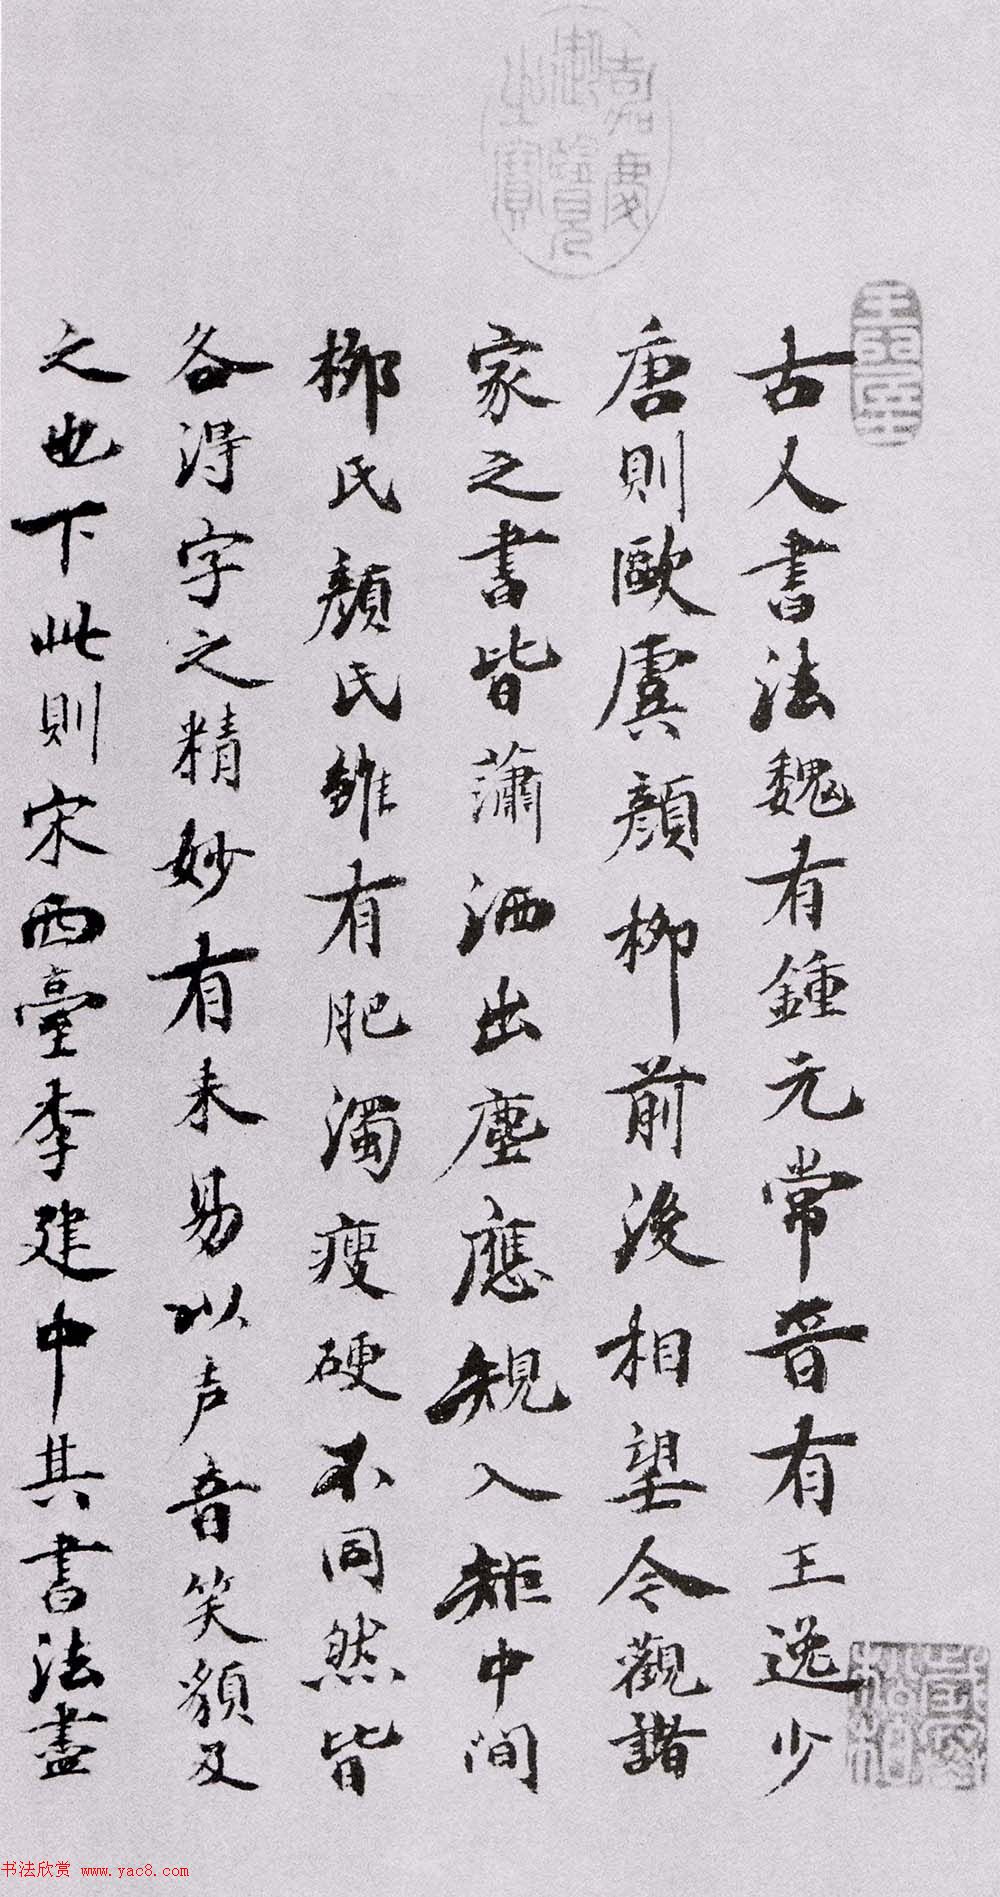 嘉慶
御覽
之寶
古人書法魏有鍾元常晉有王逸少
唐則歐虞顏柳前後相望令觀諸
家之書皆蕭洒出塵應規入矩中間
柳氏顏氏雖有肥濁瘦硬不同然皆
各得字之精妙有未易以声音笑貌及
之也下此則宋西臺李建中其書法盡
书法欣赏 www.yac8.com